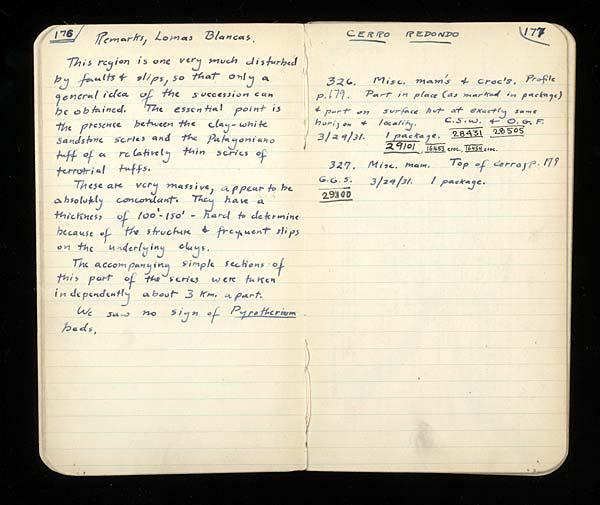 176
Remarks, Lomas Blancas.
This region is one very much disturbed
by faults & slips, so that only a
general idea of the succession can
be obtained. The essential point is
the presence between the clay-white
sandstone series and the Patagoniano
tuff of a relatively thin series of
terrotrial tuffs.
These are very massive, appear to be
absolutely concordant. They have a
thickness of 100'-150' - hard to determine
because of the structure & frequent slips
on the underlying clays.
The accompanying simple sections of
this part of the series were taken
independently about 3 km. apart.
We saw no sign of Pyrotherium
beds.
CERRO REDONDO
177
326. Misc. mam's & croc's. Profile
p. 179. Part in place (as marked in package)
& part on surface but at exactly same
horizon & locality. C.S.W. & O.G.F.
3/29/31. 1 package. 28431 28505
29101 16453 croc. 16454 croc.
327. Misc. mam. Top of cerro p. 179
G.G.S. 3/29/31. 1 package.
29300